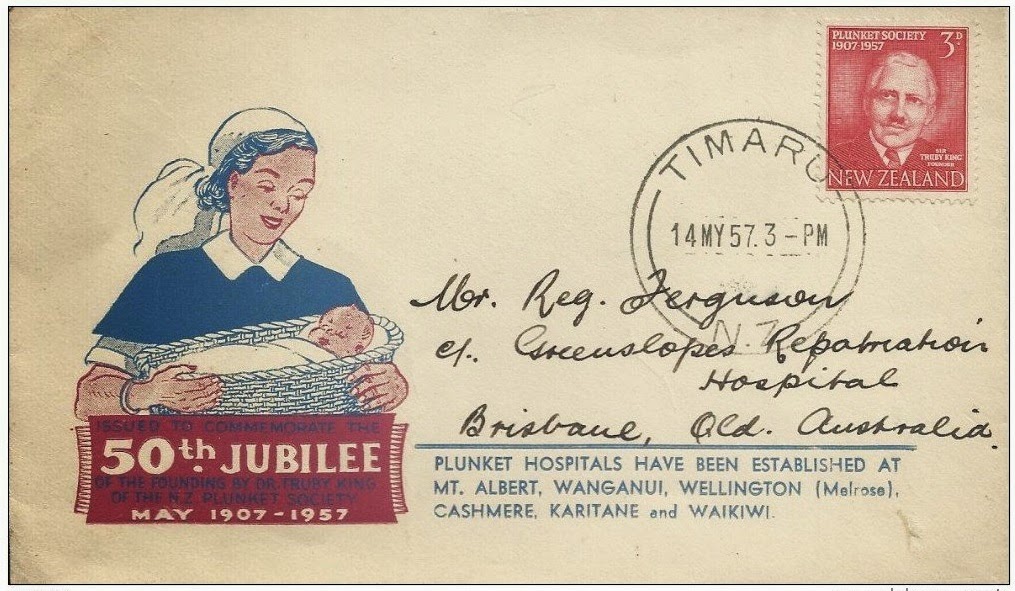 PLUNKET SOCIETY 3D
1907-1957
SIR
TRUBY KING
FOUNDER
NEW ZEALAND
TIMARU
14 MY 57. 3 - PM
N.Z.
Mr. Reg. Ferguson
c/. Greenslopes Repatriation
Hospital
Brisbane, Qld. Australia.
ISSUED TO COMMEMORATE THE
50th. JUBILEE
OF THE FOUNDING BY DR. TRUBY KING
OF THE N.Z. PLUNKET SOCIETY
MAY 1907-1957
PLUNKET HOSPITALS HAVE BEEN ESTABLISHED AT
MT. ALBERT, WANGANUI, WELLINGTON (Melrose),
CASHMERE, KARITANE and WAIKIWI.